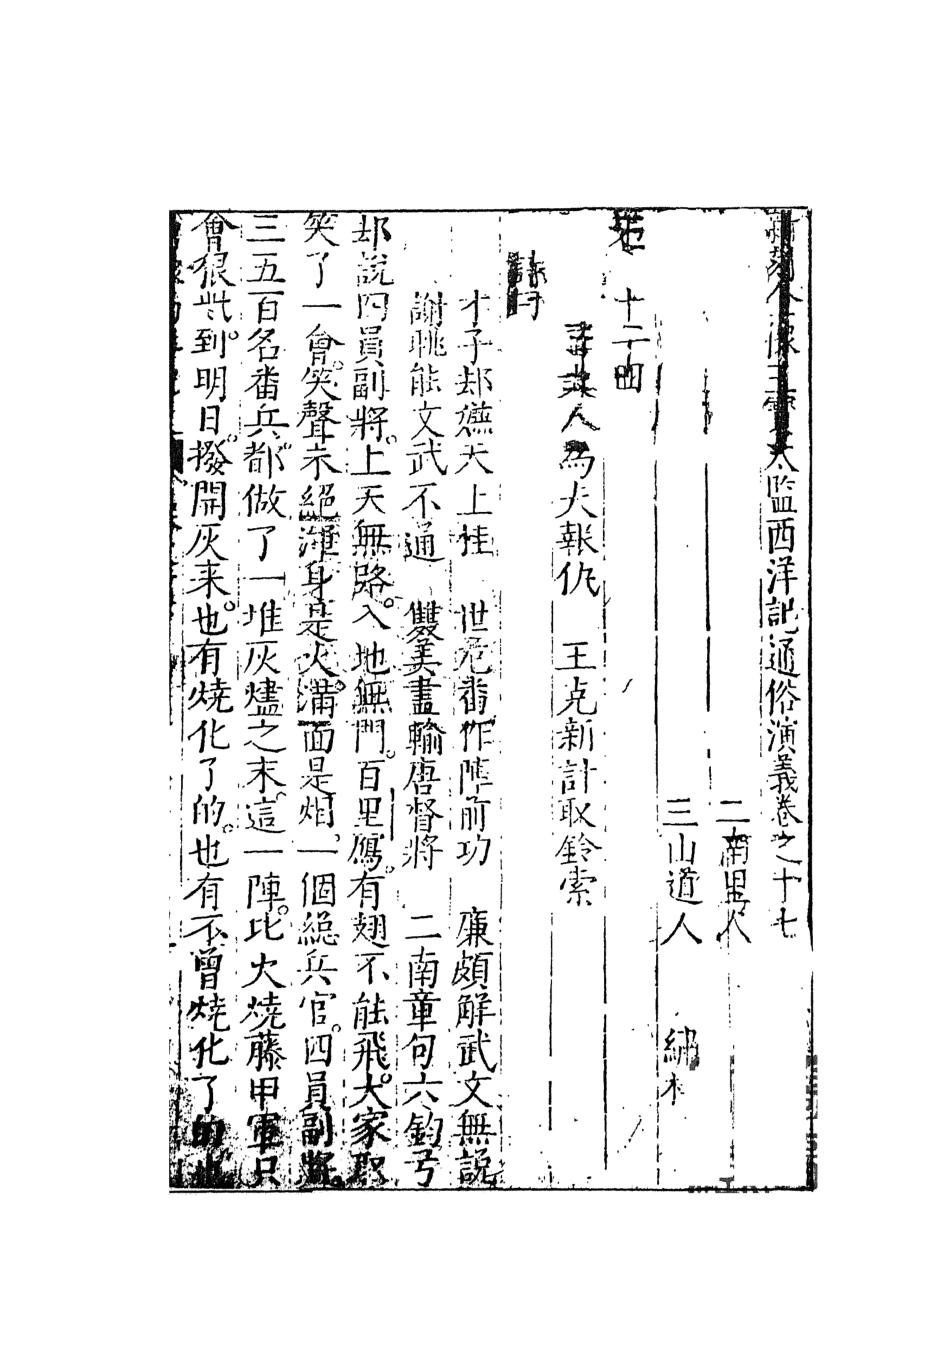 新刻全像三寶太監西洋記通俗演義卷之十七
二南里人
三山道人 綉梓
第 十二回
人為夫報仇 王克新計取鈴索
詩曰
才子却嫌天上桂 世危番作陣前功 廉頗解武文無說
謝眺能文武不通 雙美盡輸唐督將 二南章句六鈞弓
却說四員副將。上天無路。入地無門。百里鴈。有翅不能飛。大家取
笑了一會。笑聲未絕渾身是火。滿面是烟。一個總兵官。四員副將。
三五百名番兵。都做了一堆灰燼之末。這一陣。比火燒藤甲軍只
會狠些。到明日。撥開灰来。也有燒化了的。也有不曾燒化了的也